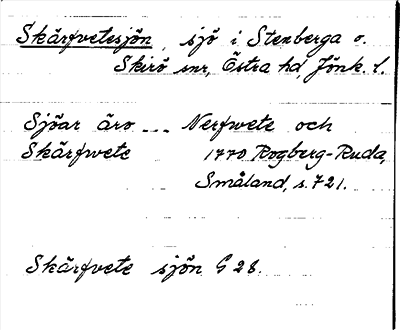 Skärfvetesjön, sjö i Stenberga o.
Skirö snr, Östra hd, Jönk. l.
Sjöar äro --- Nerfwete och
Skärfwete 1770 Rogberg-Ruda,
Småland, s. 721.
Skärfvete sjön G 28.